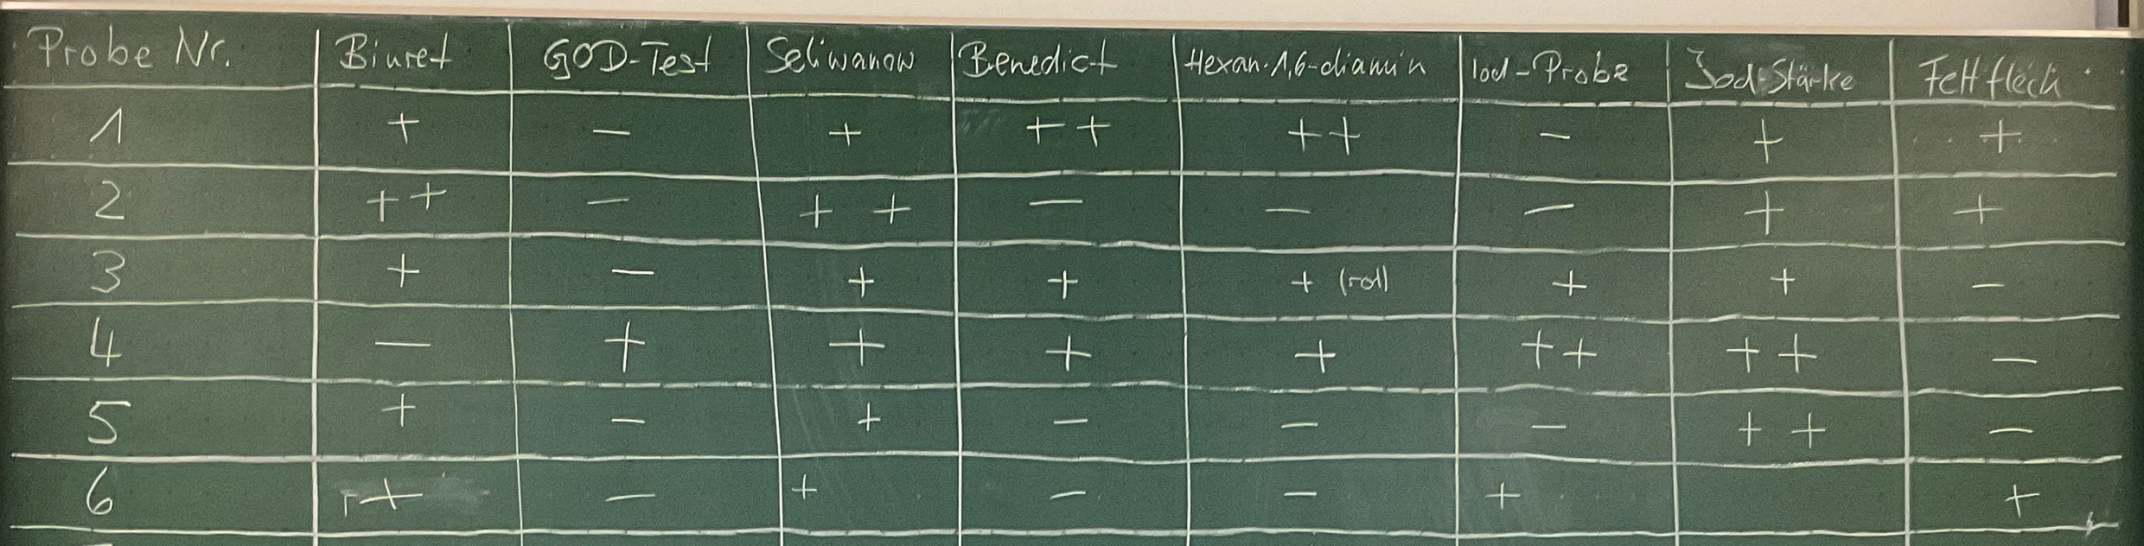 Probe Nr. Biuret GOD-Test Seliwanow Benedict Hexan-1,6-diamin Iod-Probe Jod-Stärke Fettfleck
1 + - + ++ ++ - + +
2 ++ - ++ - - - + +
3 + - + + + (rot) + + -
4 - + + + + ++ ++ -
5 + - + - - - ++ -
6 + - + - - + +